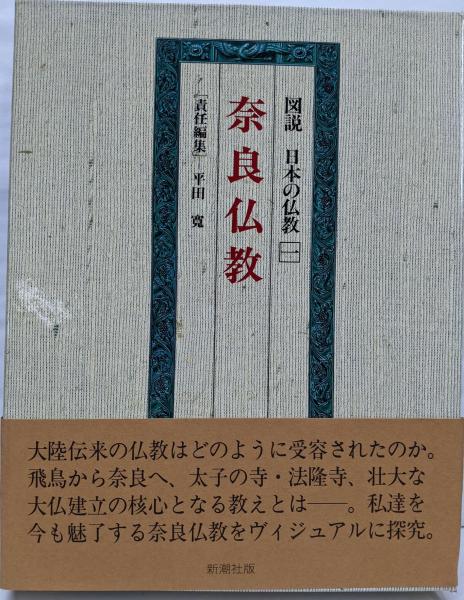 図説 日本の仏教 一
奈良仏教
[責任編集] 平田 寛
大陸伝来の仏教はどのように受容されたのか。
飛鳥から奈良へ、太子の寺・法隆寺、壮大な
大仏建立の核心となる教えとは――。私達を
今も魅了する奈良仏教をヴィジュアルに探究。
新潮社版